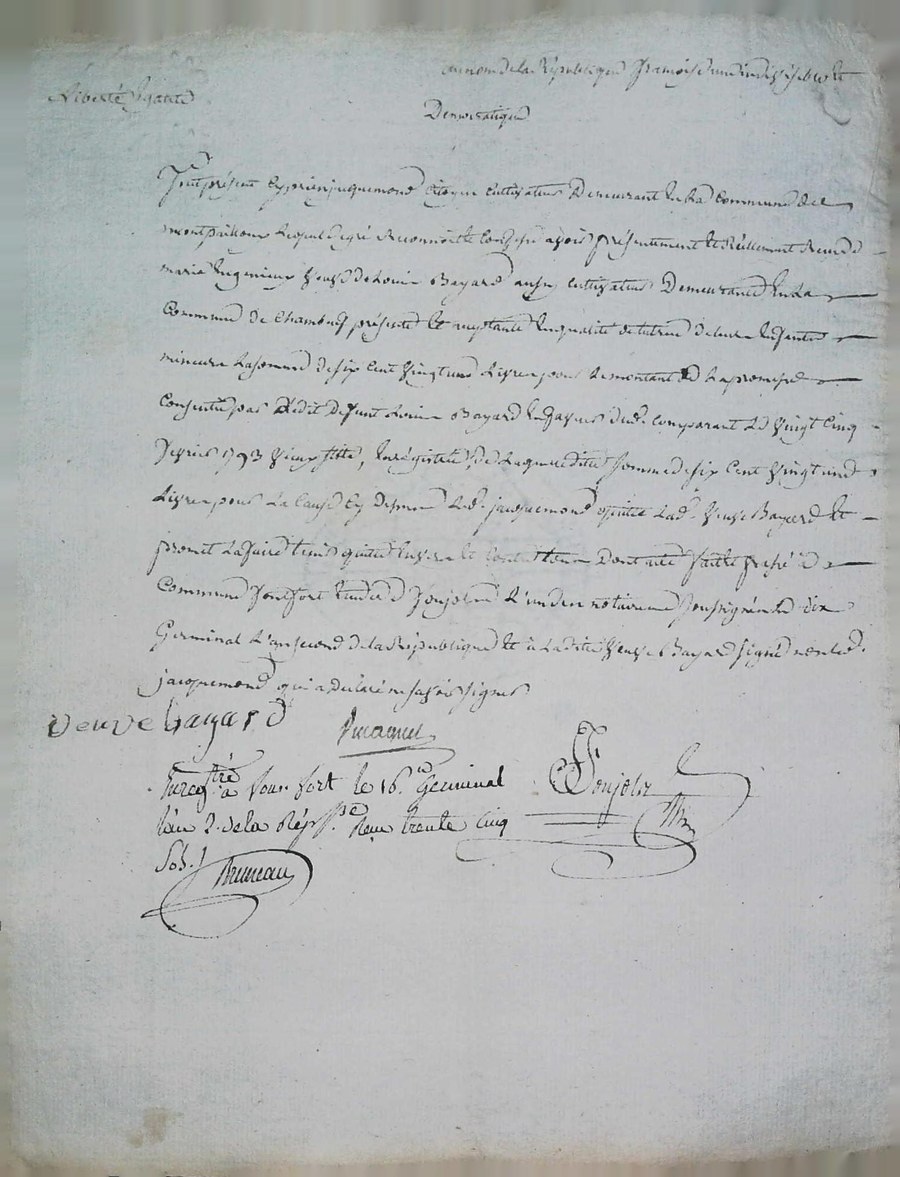 au nom de la République françoise une indivisible et
Liberté égalité
Democratique
fut présent Cyprien jacquemond citoyen cultivateur Demeurant en la commune de
montpailhour Lequel de gré Reconnoit et Confesse avoir présentement et Réellement Receu de
marie veuve de Louis Bayard aussy cultivateur Demeurand en la
Commune de Chambeuf présente et aceptante en qualité de tutrice de leurs Enfants
mineurs La somme de six Cent Vingt une Livres pour Le montant de La promesse
Consentie par Ledit Defunt Louis Bayard En faveur dud. comparant Le Vingt Cinq
fevrier 1793 vieux stile, Enrégistrée, de Laquelle ditte somme de six Cent Vingt une
Livres pour La Cause Cy Dessus Led. jacquemond quitte Lad. Veuve Bayard et
promet La faire tenir quitte Envers et Contre tous Dont acte fait et passé à
Commune Fontfort Etude de Ponjolin L'un des notaires Soussignés Le dix
Germinal L'an second de la République et a Ladite Veuve Bayard signé non led.
jacquemond qui a déclaré ne savoir signer
veuve bayard
Enregtré à Fonfort le 16. Germinal
l'an 2. de la Répque. Reçu trente Cinq
Sols.
Bruneau